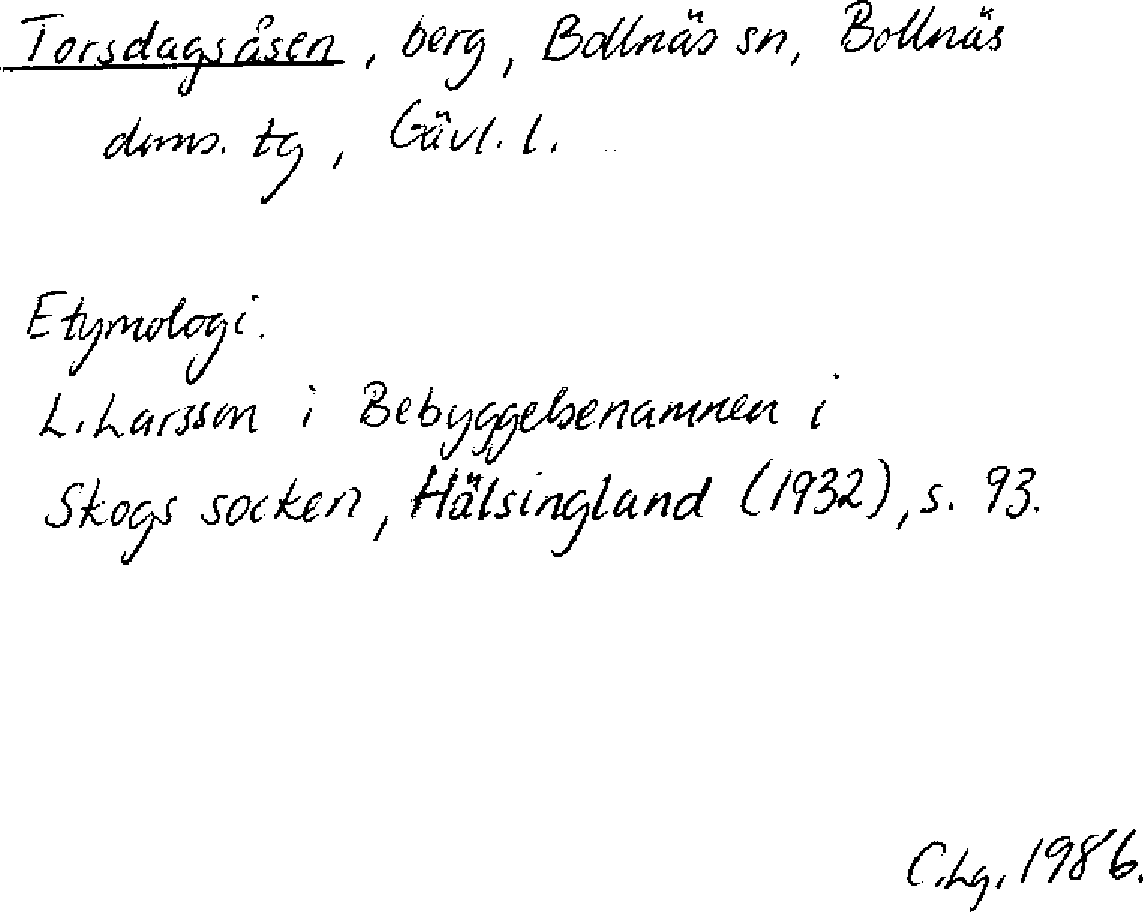 Torsdagsåsen, berg, Bollnäs sn, Bollnäs
doms. tg, Gävl. l.
Etymologi.
L. Larsson i Bebyggelsenamnen i
Skogs socken, Hälsingland (1932), s. 93.
C. Lg. 1986.